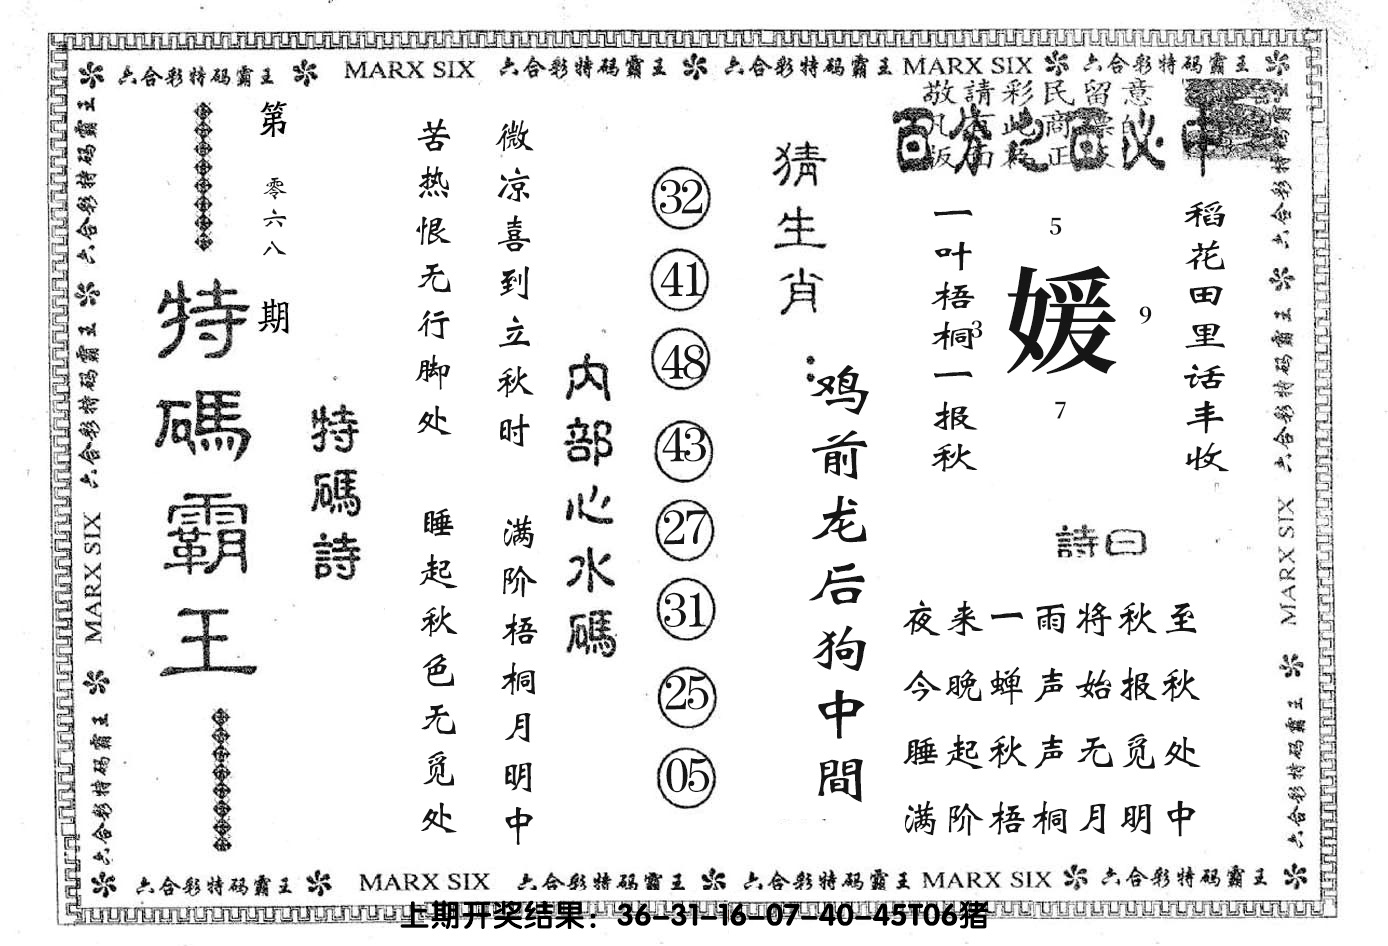 六合彩特码霸王 MARX SIX 六合彩特码霸王 六合彩特码霸王 MARX SIX 六合彩特码霸王
敬請彩民留意
百分之百必中
稻花田里话丰收
5
媛
3
9
7
一叶梧桐一报秋
詩曰
夜来一雨将秋至
今晚蝉声始报秋
睡起秋声无觅处
满阶梧桐月明中
猜生肖:
鸡前龙后狗中間
32
41
48
43
27
31
25
05
内部心水碼
微凉喜到立秋时
满阶梧桐月明中
苦热恨无行脚处
睡起秋色无觅处
特碼詩
第零六八期
特碼霸王
六合彩特码霸王
六合彩特码霸王
MARX SIX
六合彩特码霸王
六合彩特码霸王
六合彩特码霸王
MARX SIX
六合彩特码霸王
六合彩特码霸王 MARX SIX 六合彩特码霸王 六合彩特码霸王 MARX SIX 六合彩特码霸王
上期开奖结果：36-31-16-07-40-45T06猪